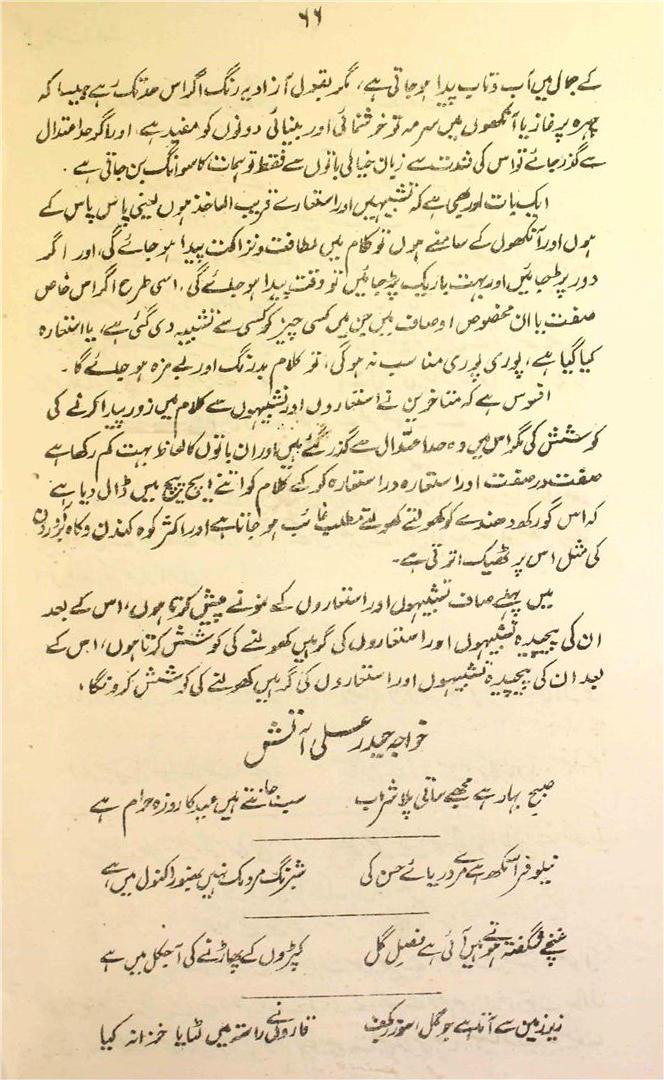 ۶۶
کے جمال میں آب و تاب پیدا ہو جاتی ہے، مگر بقول آزاد یہ رنگ اگر اس حد تک ہے جیسا کہ
چہرہ پر غازہ یا آنکھوں میں سرمہ تو خوشنمائی اور بینائی دونوں کو مفید ہے اور اگر حد اعتدال
سے گذر جائے تو اس کی شدت سے زبان خیالی باتوں سے فقط توہمات کا سوانگ بن جاتی ہے۔
ایک بات اور بھی ہے کہ تشبیہیں اور استعارے قریب الماخذ ہوں یعنی پاس پاس کے
ہوں اور آنکھوں کے سامنے ہوں تو کلام میں لطافت و نزاکت پیدا ہو جائے گی، اور اگر
دور پڑ جائیں اور بہت باریک پڑ جائیں تو وقت پیدا ہو جائے گی، اسی طرح اگر اس خاص
صفت یا ان مخصوص اوصاف میں جن میں کسی چیز کو کسی سے تشبیہ دی گئی ہے، یا استعارہ
کیا گیا ہے، پوری پوری مناسب نہ ہو گی، تو کلام بدرنگ اور بے مزہ ہو جائے گا۔
افسوس ہے کہ متاخرین نے استعاروں اور تشبیہوں سے کلام میں زور پیدا کرنے کی
کوشش کی مگر اس میں وہ حد اعتدال سے گذر گئے ہیں اور ان باتوں کا لحاظ بہت کم رکھا ہے
صفت در صفت اور استعارہ در استعارہ کر کے کلام کو اتنے ایچ پیچ میں ڈال دیا ہے
کہ اس گورکھ دھندے کو کھولتے کھولتے مطلب غائب ہو جاتا ہے اور اکثر کوہ کندن و کاہ بر آوردن
کی مثل اس پر ٹھیک اترتی ہے۔
میں پہلے صاف تشبیہوں اور استعاروں کے نمونے پیش کرتا ہوں، اس کے بعد
ان کی پیچیدہ تشبیہوں اور استعاروں کی گرہیں کھولنے کی کوشش کرتا ہوں، اس کے
بعد ان کی پیچیدہ تشبیہوں اور استعاروں کی گرہیں کھولنے کی کوشش کرونگا،
خواجہ حیدر علی آتش
صبح بہار ہے مجھے ساقی پلا شراب سب جانتے ہیں عید کا روزہ حرام ہے
نیلوفر آنکھ ہے مرے دریائے حسن کی شبرنگ مردمک نہیں بھنورا کنول میں ہے
غنچے شگفتہ ہوتے ہیں آئی ہے فصل گل کپڑوں کے پھاڑنے کی آجکل میں ہے
زیر زمین سے آتا ہے جو گل سو زر بکف قاروں نے راستہ میں لٹایا خزانہ کیا